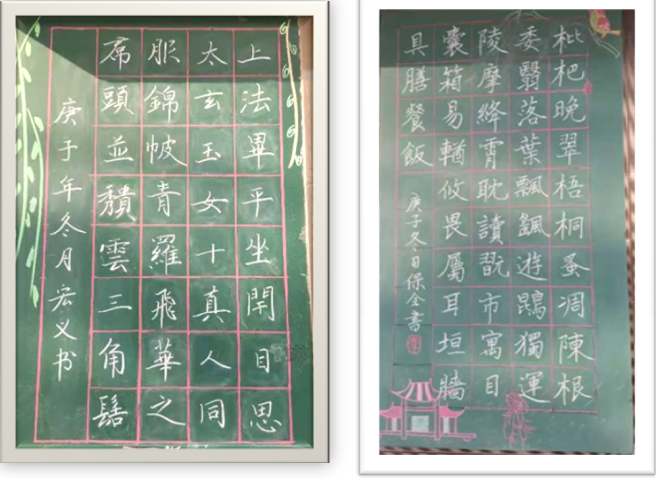 上法畢平坐閇目思
太玄玉女十真人同
服錦帔青羅飛華之
帬頭並穨雲三角髻
庚子年冬月宏义书
枇杷晚翠梧桐蚤凋陳根
委翳落葉飄颻遊鵾獨運
陵摩絳霄耽讀翫市寓目
囊箱易輶攸畏屬耳垣牆
具膳餐飯
庚子冬日保全書